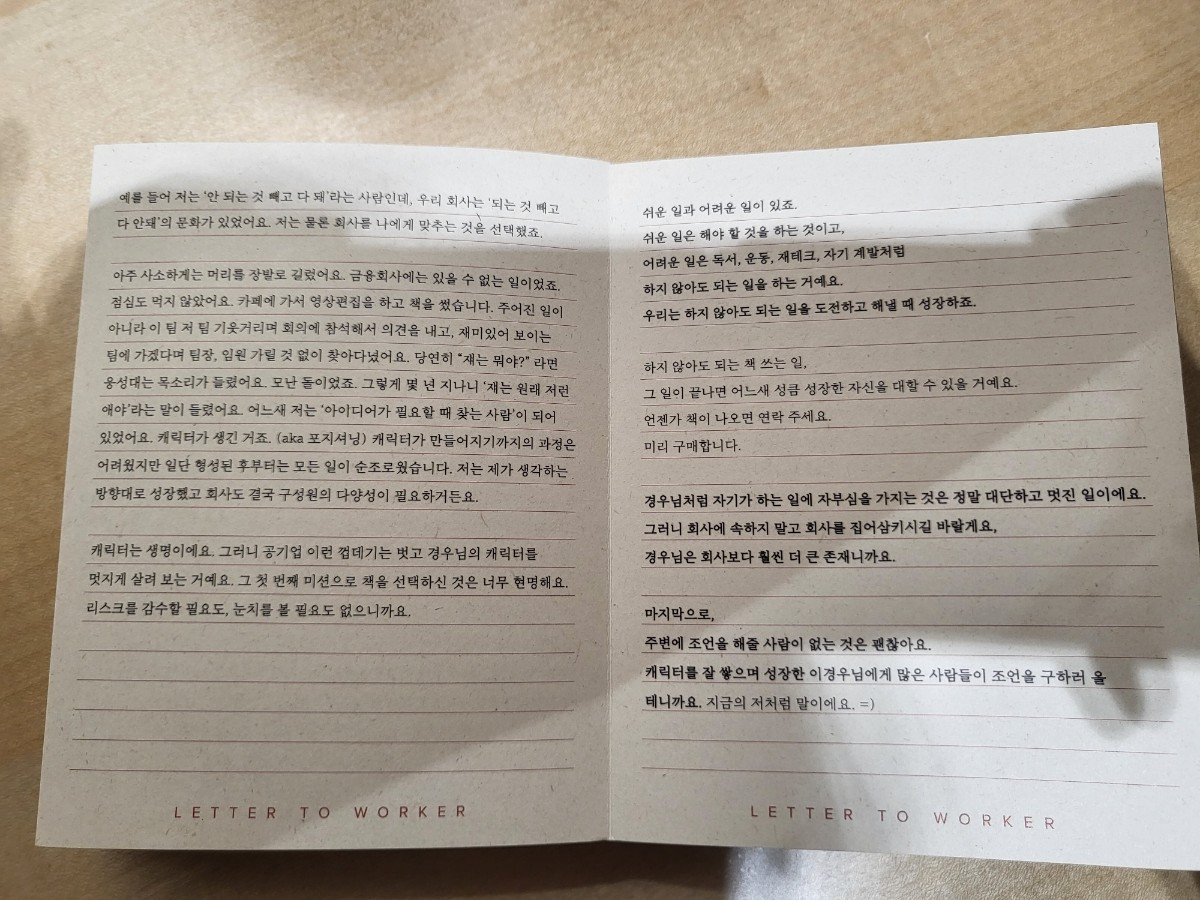 예를 들어 저는 ‘안 되는 것 빼고 다 돼’라는 사람인데, 우리 회사는 ‘되는 것 빼고
다 안돼’의 문화가 있었어요. 저는 물론 회사를 나에게 맞추는 것을 선택했죠.
아주 사소하게는 머리를 장발로 길렀어요. 금융회사에는 있을 수 없는 일이었죠.
점심도 먹지 않았어요. 카페에 가서 영상편집을 하고 책을 썼습니다. 주어진 일이
아니라 이 팀 저 팀 기웃거리며 회의에 참석해서 의견을 내고, 재미있어 보이는
팀에 가겠다며 팀장, 임원 가릴 것 없이 찾아다녔어요. 당연히 “쟤는 뭐야?” 라면
웅성대는 목소리가 들렸어요. 모난 돌이었죠. 그렇게 몇 년 지나니 ‘쟤는 원래 저런
애야’라는 말이 들렸어요. 어느새 저는 ‘아이디어가 필요할 때 찾는 사람’이 되어
있었어요. 캐릭터가 생긴 거죠. (aka 포지셔닝) 캐릭터가 만들어지기까지의 과정은
어려웠지만 일단 형성된 후부터는 모든 일이 순조로웠습니다. 저는 제가 생각하는
방향대로 성장했고 회사도 결국 구성원의 다양성이 필요하거든요.
캐릭터는 생명이에요. 그러니 공기업 이런 껍데기는 벗고 경우님의 캐릭터를
멋지게 살려 보는 거예요. 그 첫 번째 미션으로 책을 선택하신 것은 너무 현명해요.
리스크를 감수할 필요도, 눈치를 볼 필요도 없으니까요.
LETTER TO WORKER
쉬운 일과 어려운 일이 있죠.
쉬운 일은 해야 할 것을 하는 것이고,
어려운 일은 독서, 운동, 재테크, 자기 계발처럼
하지 않아도 되는 일을 하는 거예요.
우리는 하지 않아도 되는 일을 도전하고 해낼 때 성장하죠.
하지 않아도 되는 책 쓰는 일,
그 일이 끝나면 어느새 성큼 성장한 자신을 대할 수 있을 거예요.
언젠가 책이 나오면 연락 주세요.
미리 구매합니다.
경우님처럼 자기가 하는 일에 자부심을 가지는 것은 정말 대단하고 멋진 일이에요.
그러니 회사에 속하지 말고 회사를 집어삼키시길 바랄게요,
경우님은 회사보다 훨씬 더 큰 존재니까요.
마지막으로,
주변에 조언을 해줄 사람이 없는 것은 괜찮아요.
캐릭터를 잘 쌓으며 성장한 이경우님에게 많은 사람들이 조언을 구하러 올
테니까요. 지금의 저처럼 말이에요. =)
LETTER TO WORKER